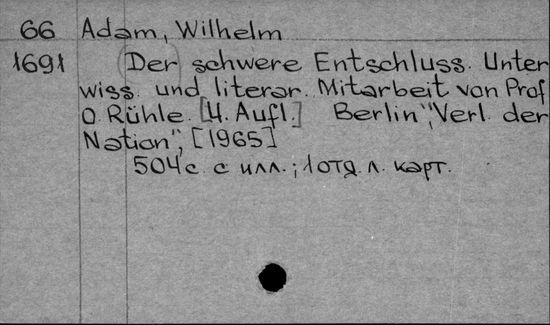 66 Adam, Wilhelm
1691 Der schwere Entschluss. Unter
wiss. und literar. Mitarbeit von Prof
O. Rühle. [4. Aufl.] Berlin "Verl. der
Nation", [1965]
504 с. с илл.; 1 отд. л. карт.